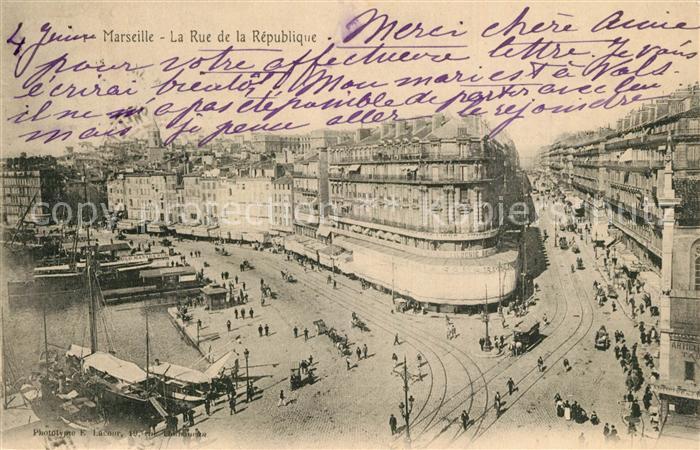 4 Marseille - La Rue de la République. Merci chère Amie
pour votre affectueuse lettre. Je vous
écrirai bientôt. Mon mari est à Vals.
il ne m'a pas été possible de partir avec lui
mais j'y peux aller le rejoindre
copyright by klepiers webserver
Phototypie E. Lacour,